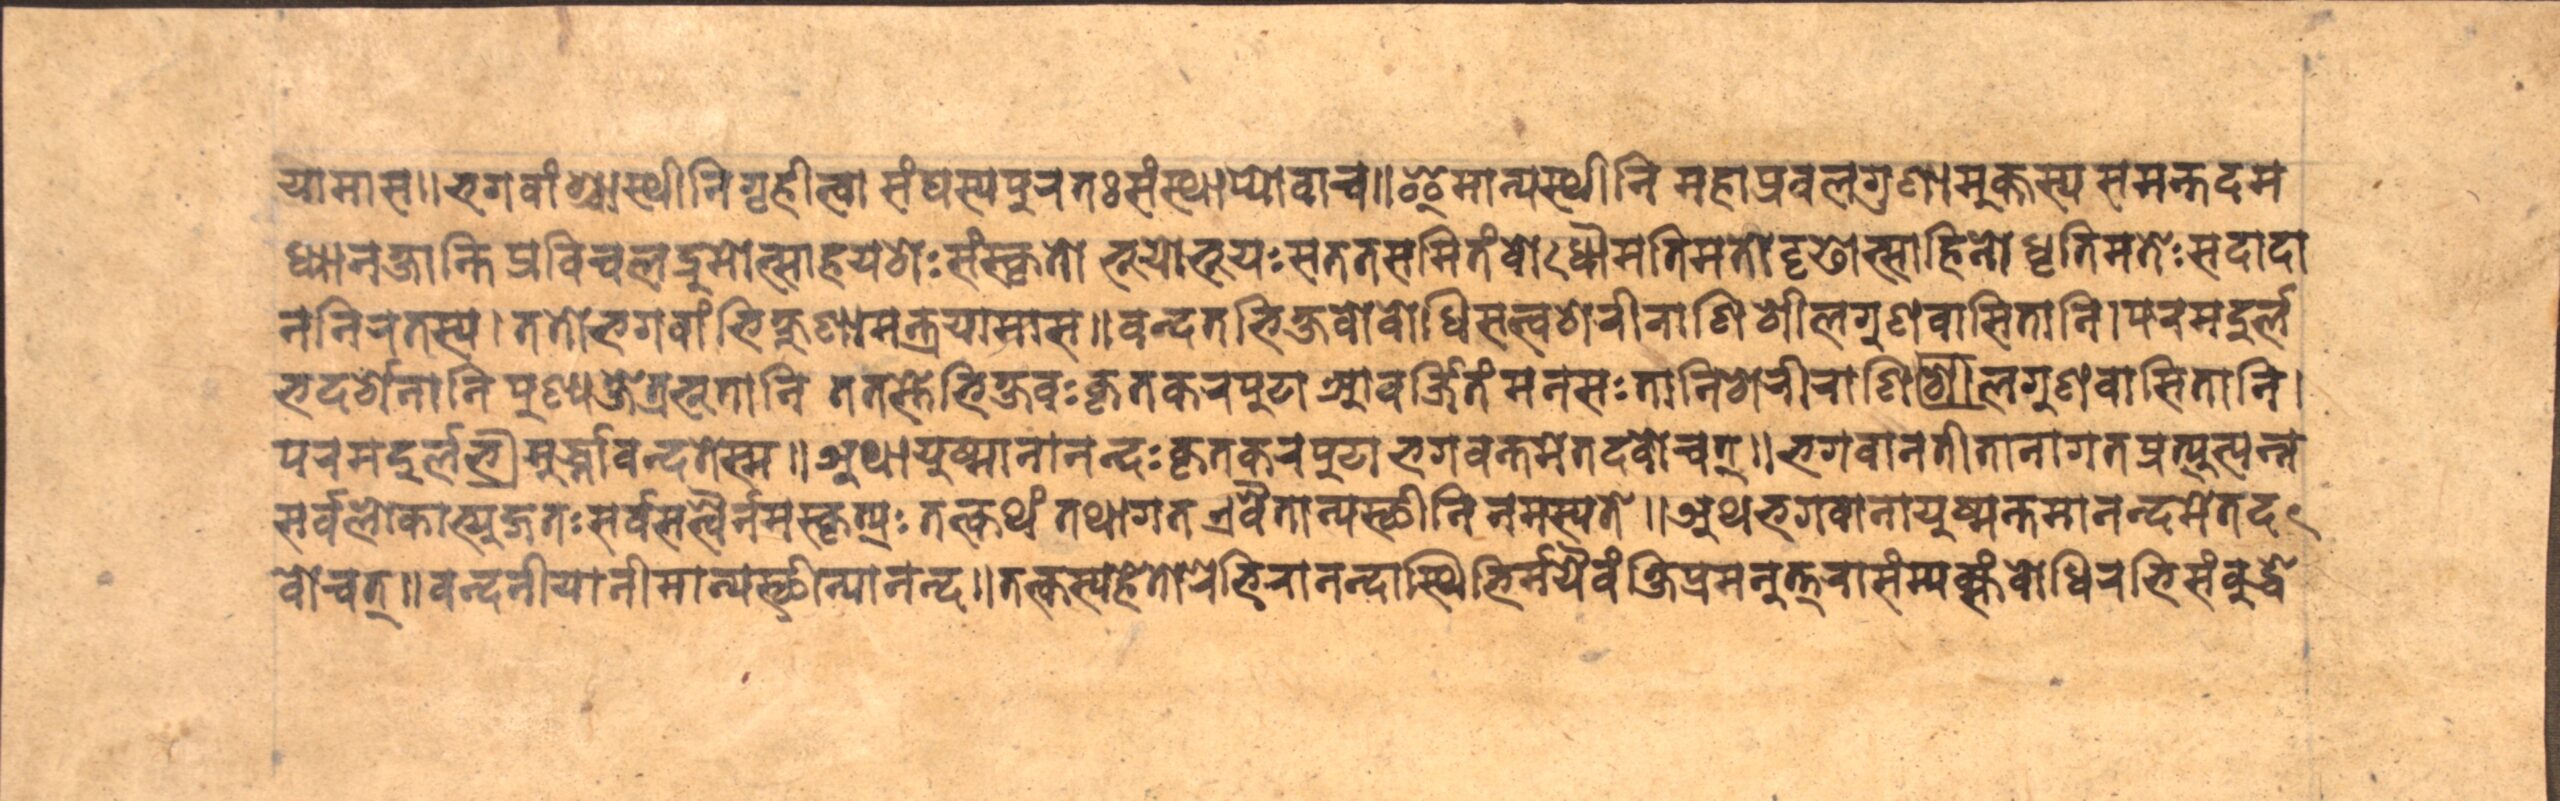 यामास॥भगवांश्चास्थीनि गृहीत्वा संघस्य पुरतः संस्थाप्योवाच॥इमान्यस्थीनि महाप्रवलगुणामुक्तस्य समन्तदम
ध्यानक्षान्ति प्रविचलद्रुमोत्साहयशः संस्कृतो भूयोभूयः सततसमितं बोधौमतिमतो दृढोत्साहिनो धृतिमतेः सदादा
ननिरतस्य।ततो भगवां भिक्षूणामन्त्रयामास॥वन्दत भिक्षवो बोधिसत्त्वशरीराणि शीलगुणवासितानि।परमदुर्ल
भदर्शनानि पुण्यक्षेत्रभूतानि ततस्ते भिक्षवः कृतकरपुटा आवर्जितं मनसः तानि शरीराणि शीलगुणवासितानि।
परमदुर्लभ मूर्द्ध्नावन्दतेस्म॥अथायुष्मानानन्दः कृतकरपुटा भगवन्तमेतदवोचत्॥भगवानतीतानागतप्रत्युत्पन्न
सर्वलोकाभ्युजतः सर्वसत्त्वैर्नमस्कृत्यः तत्कथं तथागत एवैतान्यस्थीनि नमस्यते॥अथ भगवानायुष्मन्तमानन्दमेतद
वोचत्॥वन्दनीयानीमान्यस्थीन्यानन्द॥तत्कस्यहेतोरेभिरानन्दास्थिभिर्मयैवं क्षिप्रमनुत्तरासंम्यक्संबोधिरभिसंबुद्धे